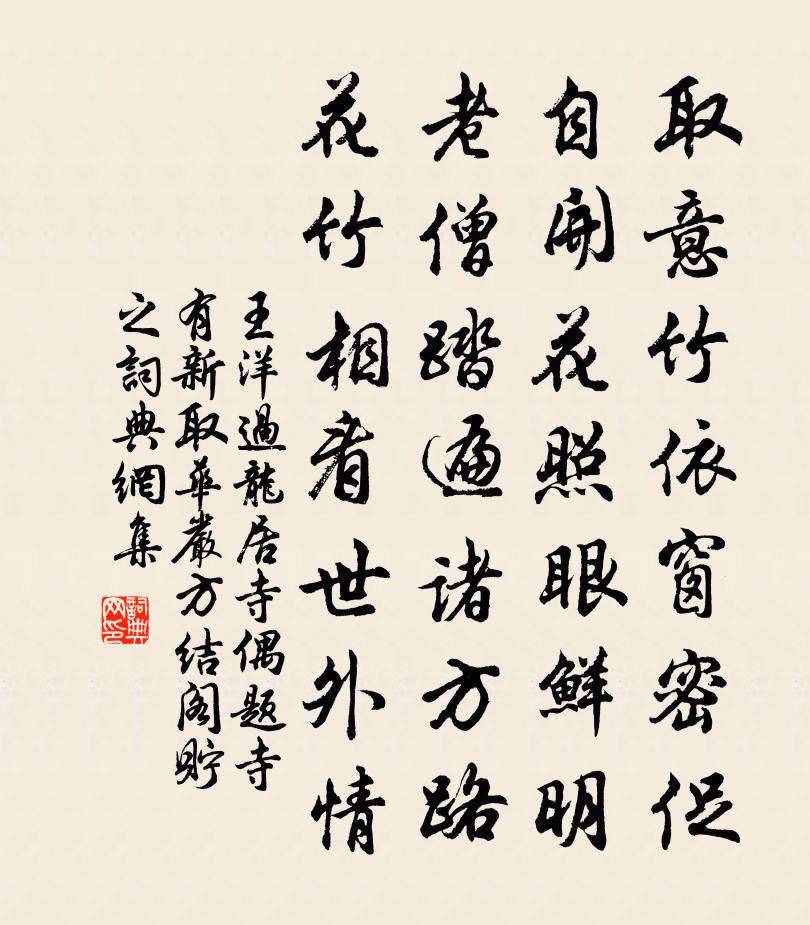 取意竹依窗密促
自開花照眼鮮明
老僧踏遍諸方路
花竹相看世外情
王洋過龍居寺偶题寺
有新取華嚴方结阁貯
之詞典網集
詞典
网印